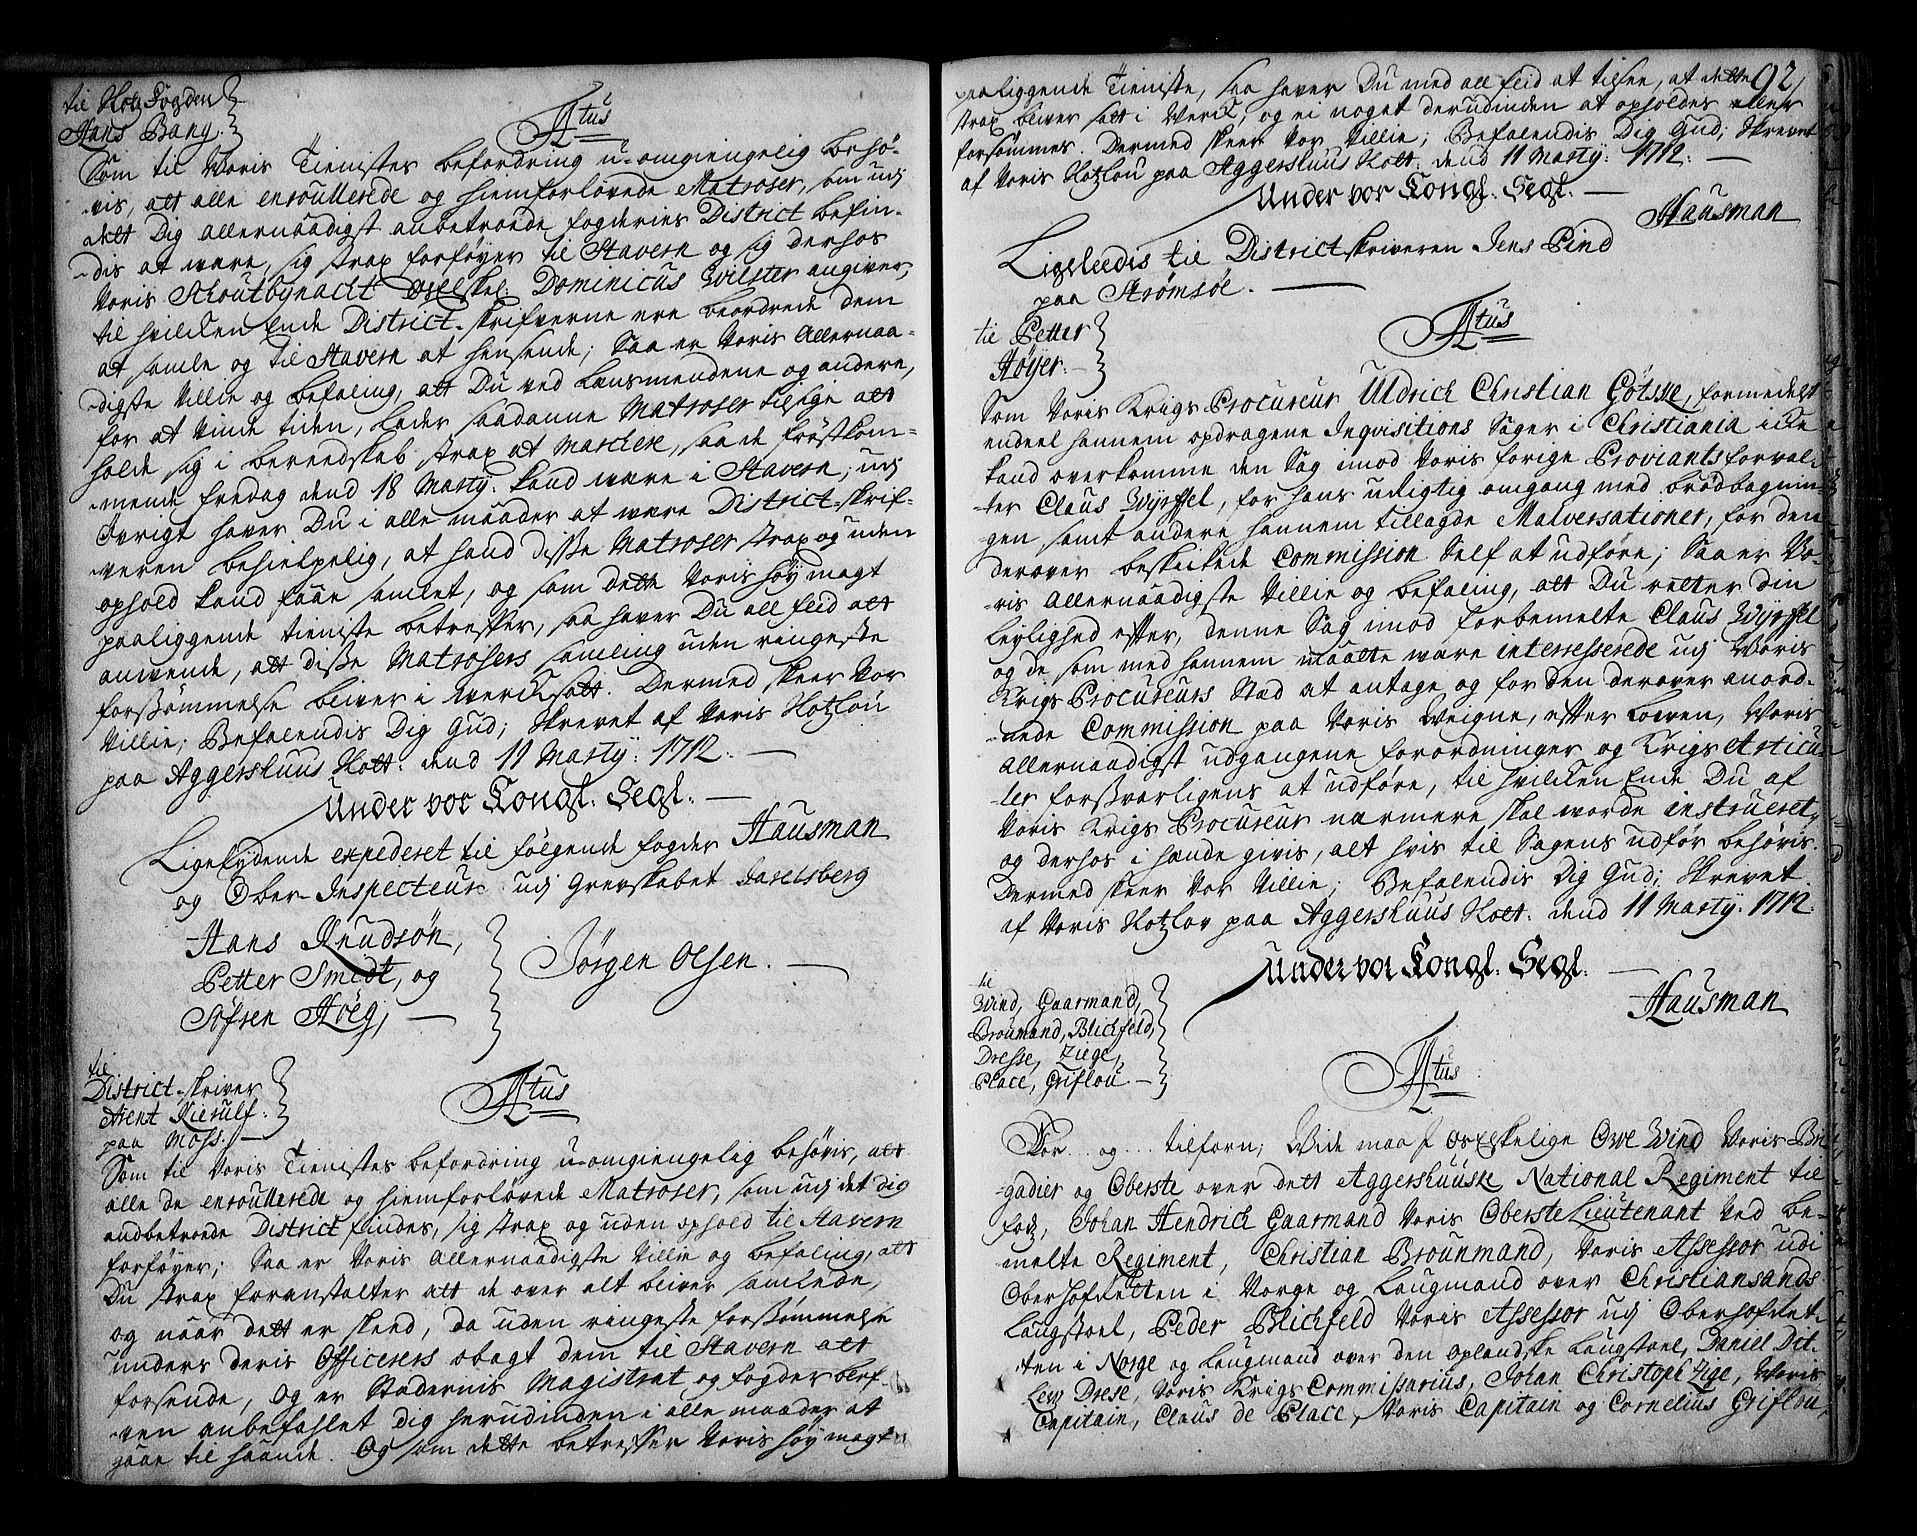 til Hotz Fogden
Hans Bang.
F4tus
Som til Voris Tienistes befordring u-omgiengelig behø-
vis, att alle enroullerede og hiemforløvede Matroser, som udj
dett Dig allernaadigst anbetroede fogderies District befin-
dis at være, sig strax forføyer til Stavern og sig derhos
Voris Schoutbynacht Oselskel: Dominicus Wilster angiver,
til hvilcken Ende District-skrifverne ere beordrede dem
at samle og til Stavern at hensende; Saa er Voris Allernaa-
digste Villie og befaling, att Du ved Lænsmendene og andere,
for at vinde tiden, lader saadanne Matroser tilsige att
holde sig i bereedskab strax at marchere, saa de førstkom-
mende fredag dend 18 Marty: kand være i Stavern; udj
Øvrigt haver Du i alle maader at være District-skrif-
veren behielpelig, at hand disse Matroser strax og uden
ophold kand faae samlet, og som dette Voris høy magt
paaliggende tieniste betreffer, saa haver Du all flid att
anvende, att disse Matrosers samling uden ringeste
forssømmelse bliver i værcksatt. Dermed skeer Vor
Villie; Befalendis Dig Gud; Skrevet af Voris Hotzlou
paa Aggershuus Slott: dend 11 Marty: 1712.
Under vor Kongl: Segl.
Hausman
Ligelydende expederet til følgende fogder
og Ober-Inspecteur udj Grevskabet Jarlsberg
Hans Knudsøn,
Petter Smidt, og
Søfren Høeg,
Jørgen Olsen.
til
District-skriver
Arent Kierulf
paa Moss.
Atus
Som til Voris Tienistes befordring u-omgiengelig behøvis, att
alle de enroullerede og hiemforløvede Matroser, som udj det dig
andbetroede District findes, sig strax og uden ophold til Stavern
forføyer; Saa er Voris Allernaadigste Villie og befaling, att
Du strax foranstalter att de over alt bliver samlede,
og naar dett er skeed, da uden ringeste forssømmelse
unders deris Officerers obagt dem til Stavern att
forsende, Og er Stædernis Magistrat og fogder beh-
ven anbefahlet dig herudinden i alle maader at
gaae til haande. Og som dette betreffer Voris høy magt
92
paaliggende Tieniste, saa haver Du med all flid at tilsee, at dette
strax bliver satt i Verck, og ei noget derudinden at opholdes eller
forsømmes. Dermed skeer Vor Villie; Befalendis Dig Gud; Skrevet
af Voris Hotzlou paa Aggershuus Slott: dend 11 Marty: 1712.
Under vor Kongl: Segl.
Hausman
Ligeledis til Districtskriveren Jens Pind
paa Strømsøe.
til Petter
Høyer.
Atus
Som Voris Krigs Procureur Uldrich Christian Götsche, formedelst
endeel hannem opdragene Inqvisitions Sager i Christiania icke
kand overkomme den Sag imod Voris forige Proviantsforval-
ter Claus Wyffel, for hans urigtig omgang med brødbagnin-
gen samt andere hannem tillagde Malversationer, for den
derover beskickede Commission Self at udføre; Saa er Vo-
ris allernaadigste Villie og befaling, att Du retter din
leylighed efter, denne Sag imod forbemelte Claus Wyffel
og de som med hannem maatte være interresserede udj Voris
Krigs Procureurs Stad at antage og for den derover anord-
nede Commission paa Voris Veigne, efter Loven, Voris
allernaadigst udgangene forordninger og Krigs Articu-
ler forsvarligens at udføre, til hvilcken Ende Du af
Voris Krigs Procureur nærmere skal worde instrueret,
og derhos i hænde givis, alt hvis til Sagens udfør behøvis.
Dermed skeer Vor Villie; Befalendis Dig Gud; Skrevet
af Voris Hotzlov paa Aggershuus Slott: dend 11 Marty: 1712.
Under vor Kongl: Segl:
Hausman
til
Wind, Gaarmand,
Brounmand, Blichfeld,
Dresse, Ziege,
Place, Griflou.
Atus
Vor.. og.. tilforn; Wide maa I Oselskelige Ove Wind Voris Bri-
gadier og Oberste over dett Aggershuuske National Regiment til
fods, Johan Hendrich Gaarmand Voris Oberste Lieutenant ved be-
melte Regiment, Christian Brounmand, Voris Assessor udi
Oberhofretten i Norge og Laugmand over Christiansands
Laugstoel, Peder Blichfeld Voris Assessor udj Oberhofret-
ten i Norge og Laugmand over den oplandske Laugstoel, Daniel Dit-
lew Drese, Voris Krigs Commissarius, Johan Christoph Zige, Voris
Capitain, Claus de Place, Voris Capitain og Cornelius Griflou,